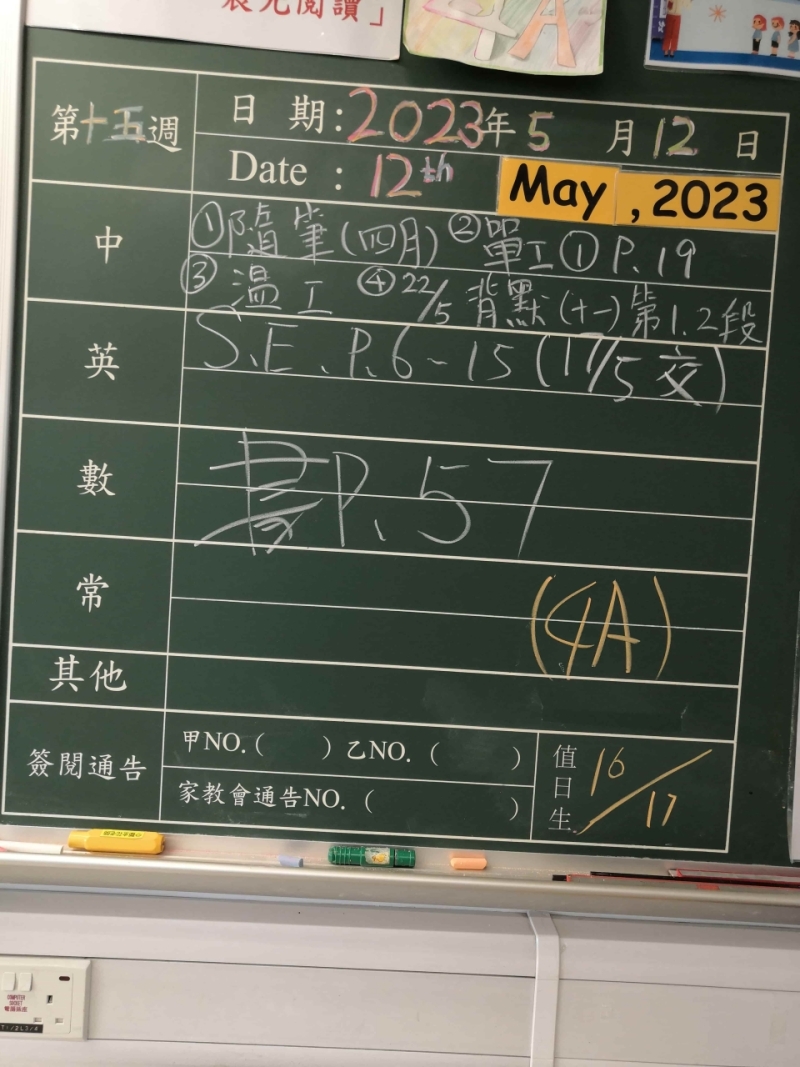 晨光閱讀」
4A
第十五週
日 期:2023年5 月12 日
Date : 12th May ,2023
中
①隨筆(四月) ②單工① P.19
③溫工 ④22/5 背默(十一)第1.2段
英
S.E.P.6~15(17/5交)
數
書P.57
常
(4A)
其他
簽閱通告
甲NO.( )乙NO.( )
家教會通告NO.( )
值日生
16/17
COMPUTER
SOCKET
電腦插座